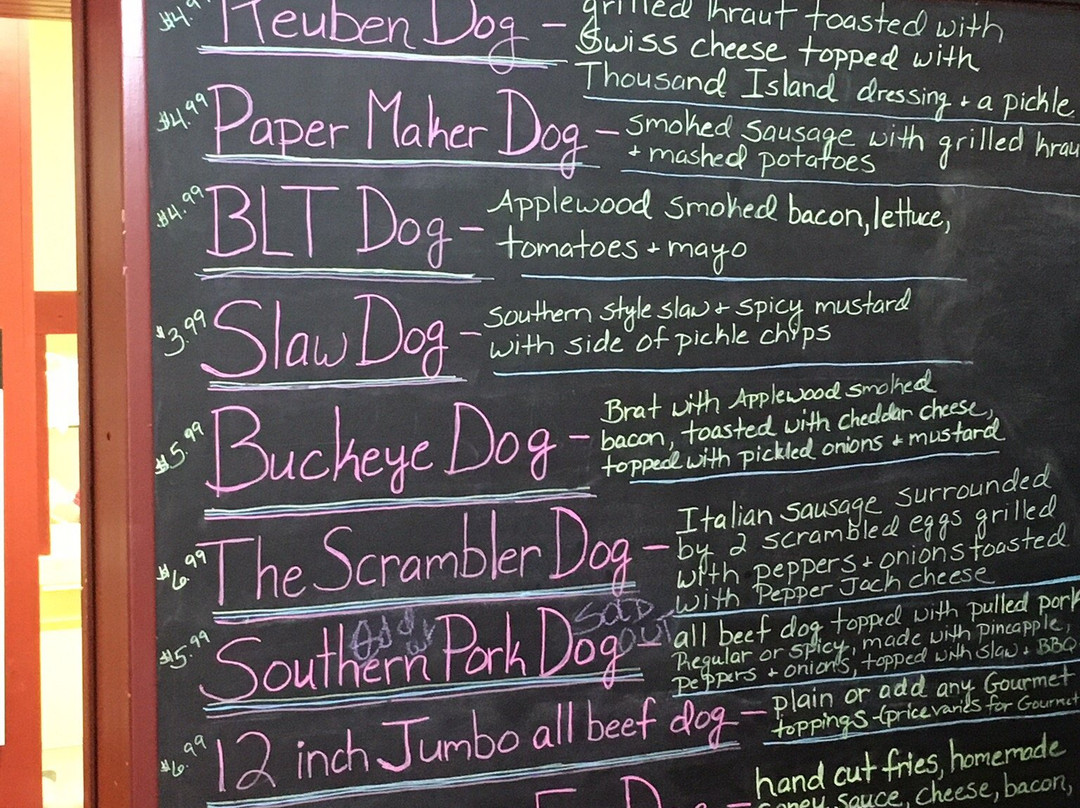 $4.99 Reuben Dog - grilled kraut toasted with
Swiss cheese topped with
Thousand Island dressing + a pickle
$4.99 Paper Maker Dog - smoked sausage with grilled krau
+ mashed potatoes
$4.99 BLT Dog - Applewood smoked bacon, lettuce,
tomatoes + mayo
$3.99 Slaw Dog - Southern style slaw + spicy mustard
with side of pickle chips
$5.99 Buckeye Dog - Brat with Applewood smoked
bacon, toasted with cheddar cheese,
topped with pickled onions + mustard
$6.99 The Scrambler Dog - Italian sausage surrounded
by 2 scrambled eggs grilled
with peppers + onions toasted
with Pepper Jack cheese
SOLD
OUT
$5.99 Southern Pork Dog - all beef dog topped with pulled pork
Regular or spicy, made with pineapple,
peppers + onions, topped with slaw + BBQ
$6.99 12 inch Jumbo all beef dog - plain or add any Gourmet
toppings - (price varies for Gourmet
hand cut fries, homemade
coney sauce, cheese, bacon,